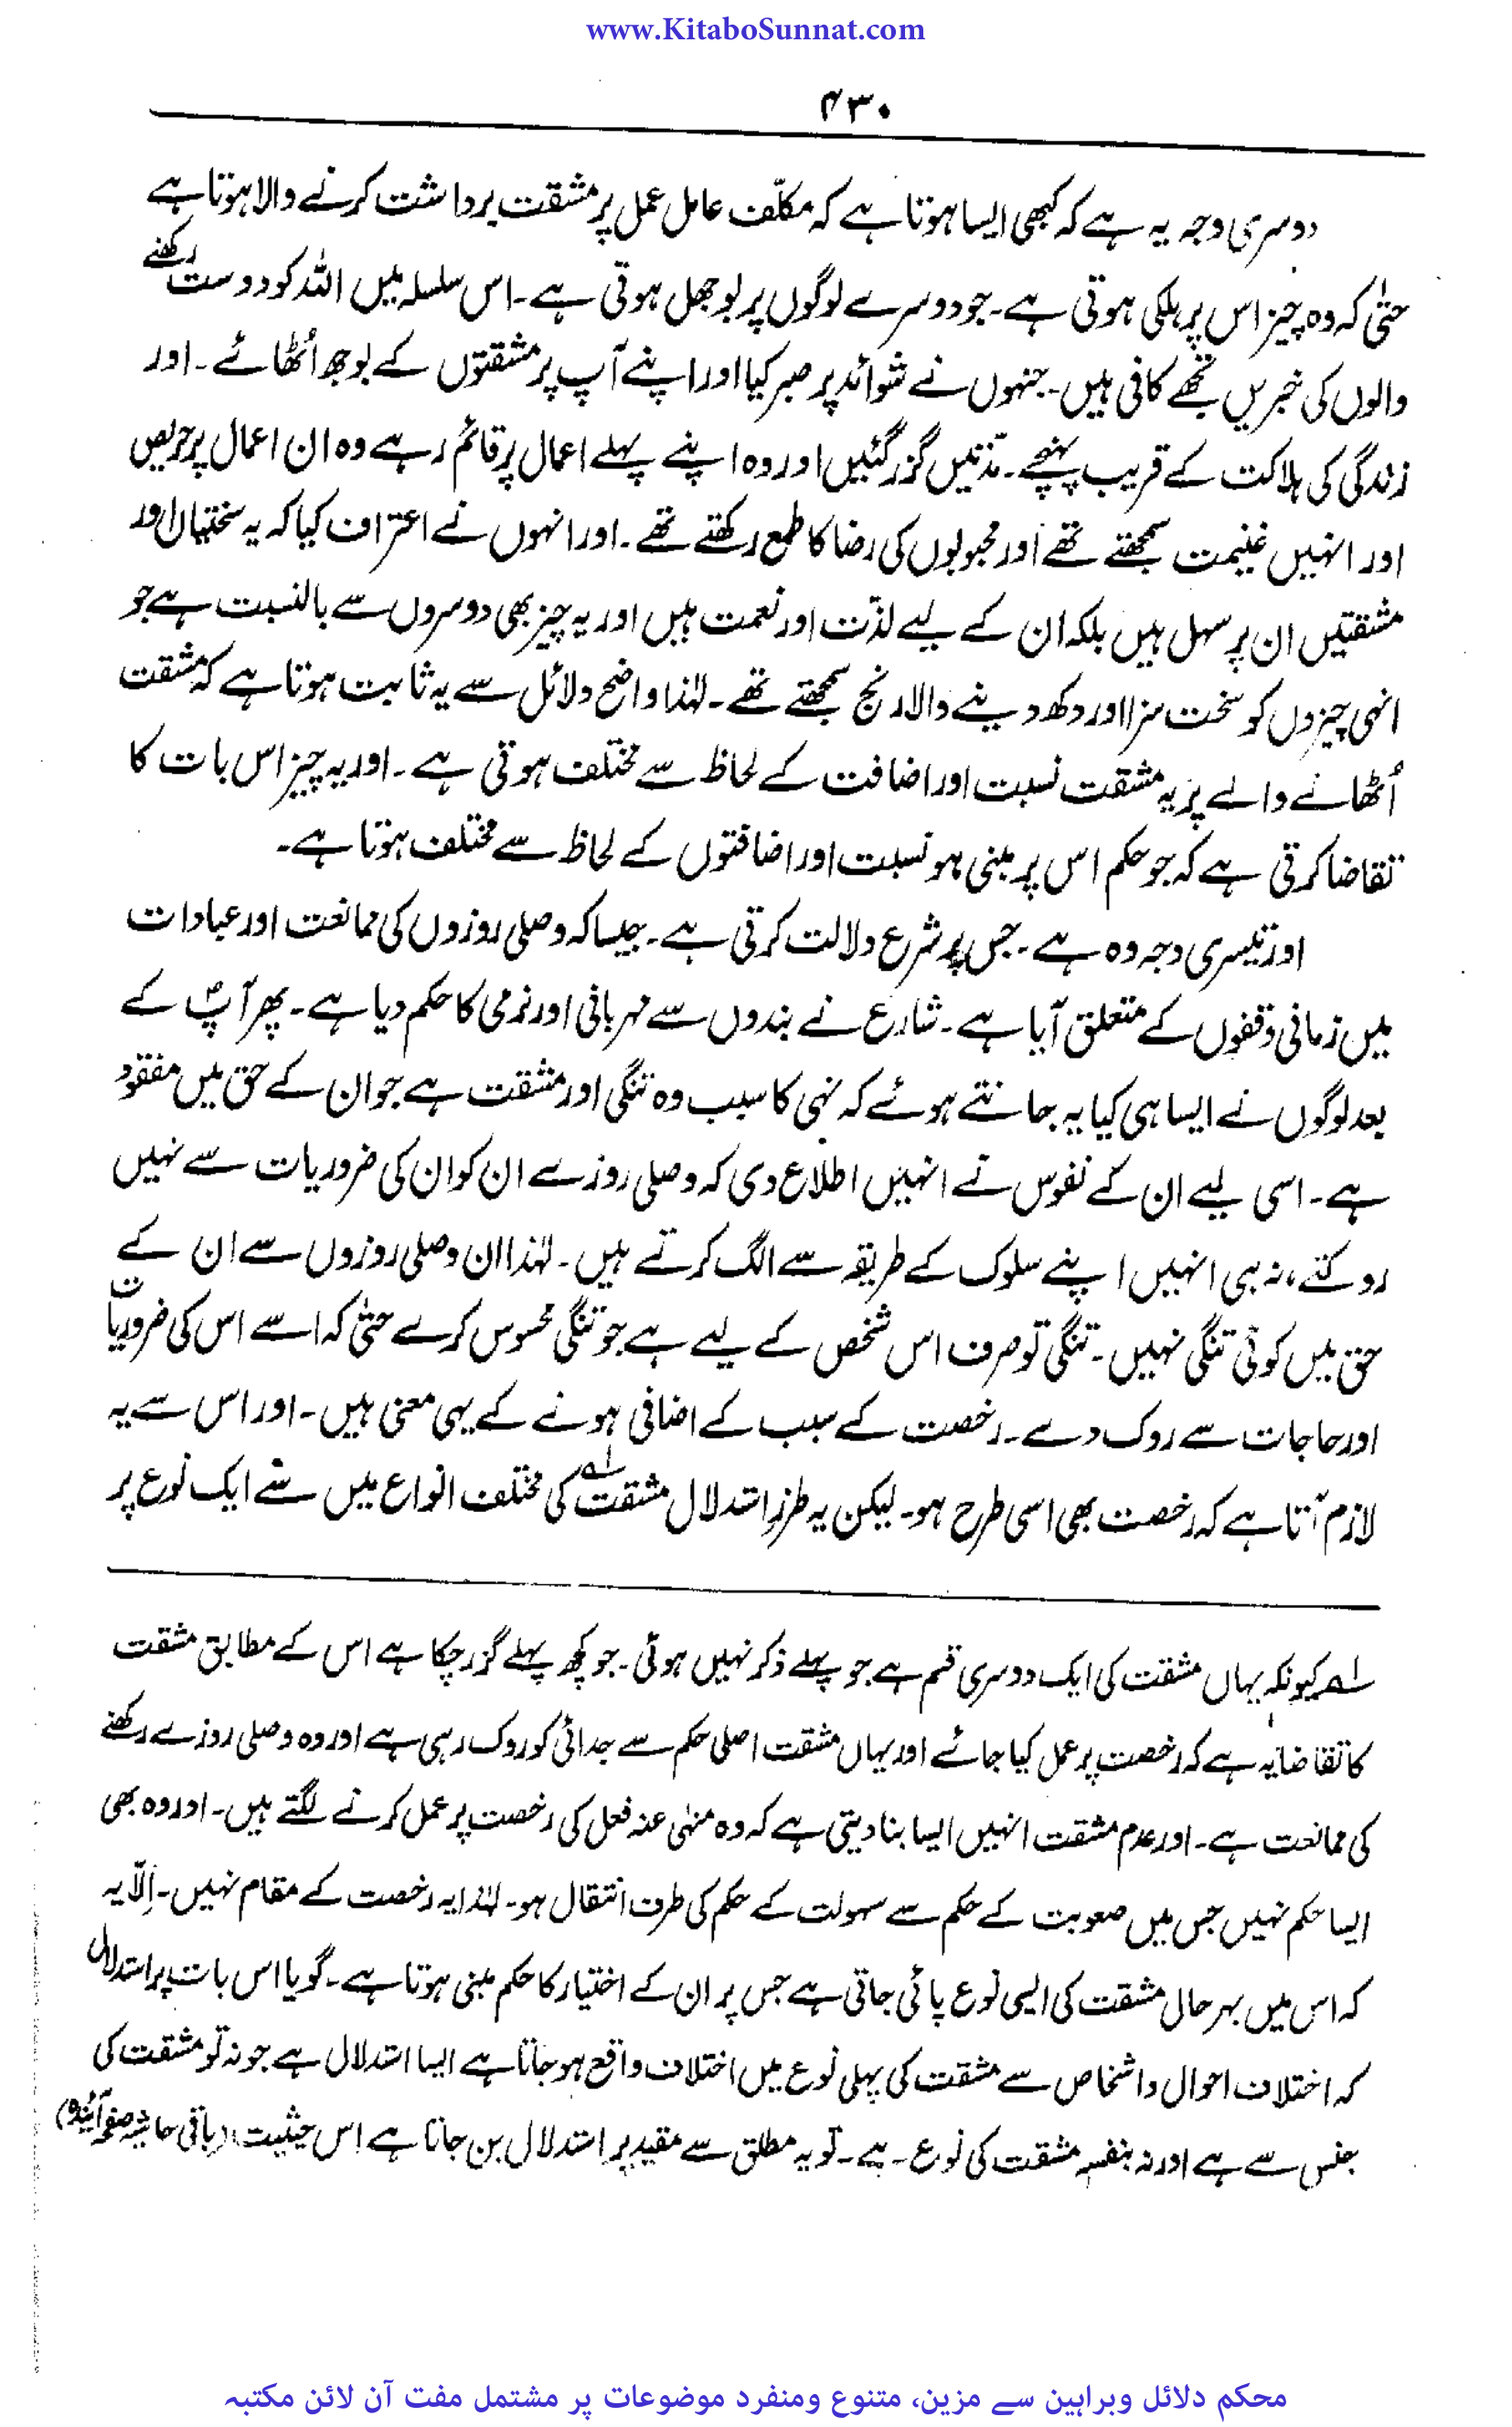 www.KitaboSunnat.com
۴۳۰
دوسری وجہ یہ ہے کہ کبھی ایسا ہوتا ہے کہ مکلّف عامل عمل پر مشقت برداشت کرنے والا ہوتا ہے
حتیٰ کہ وہ چیز اس پر ہلکی ہوتی ہے۔ جو دوسرے لوگوں پر بوجھل ہوتی ہے۔ اس سلسلہ میں اللہ کو دوست رکھنے
والوں کی خبریں تجھے کافی ہیں۔ جنہوں نے شوائد پر صبر کیا اور اپنے آپ پر مشقتوں کے بوجھ اُٹھائے۔ اور
زندگی کی ہلاکت کے قریب پہنچے۔ مدّتیں گزر گئیں اور وہ اپنے پہلے اعمال پر قائم رہے وہ ان اعمال پر حریص
اور انہیں غنیمت سمجھتے تھے اور محبوبوں کی رضا کا طمع رکھتے تھے۔ اور انہوں نے اعتراف کیا کہ یہ سختیاں اور
مشقتیں ان پر سہل ہیں بلکہ ان کے لیے لذّت اور نعمت ہیں اور یہ چیز بھی دوسروں سے بالنسبت ہے جو
انہی چیزوں کو سخت سزا اور دکھ دینے والا رنج سمجھتے تھے۔ لہٰذا واضح دلائل سے یہ ثابت ہوتا ہے کہ مشقت
اُٹھانے والے پر یہ مشقت نسبت اور اضافت کے لحاظ سے مختلف ہوتی ہے۔ اور یہ چیز اس بات کا
تقاضا کرتی ہے کہ جو حکم اس پر مبنی ہو نسبت اور اضافتوں کے لحاظ سے مختلف ہوتا ہے۔
اور تیسری وجہ وہ ہے۔ جس پر شرع دلالت کرتی ہے۔ جیسا کہ وصلی روزوں کی ممانعت اور عبادات
میں زمانی وقفوں کے متعلق آیا ہے۔ شارع نے بندوں سے مہربانی اور نرمی کا حکم دیا ہے۔ پھر آپؐ کے
بعد لوگوں نے ایسا ہی کیا یہ جانتے ہوئے کہ نہی کا سبب وہ تنگی اور مشقت ہے جو ان کے حق میں مفقود
ہے۔ اسی لیے ان کے نفوس نے انہیں اطلاع دی کہ وصلی روزے ان کو ان کی ضروریات سے نہیں
روکتے، نہ ہی انہیں اپنے سلوک کے طریقہ سے الگ کرتے ہیں۔ لہٰذا ان وصلی روزوں سے ان کے
حق میں کوئی تنگی نہیں۔ تنگی تو صرف اس شخص کے لیے ہے جو تنگی محسوس کرے حتیٰ کہ اسے اس کی ضروریات
اور حاجات سے روک دے۔ رخصت کے سبب کے اضافی ہونے کے یہی معنی ہیں۔ اور اس سے یہ
لازم آتا ہے کہ رخصت بھی اسی طرح ہو۔ لیکن یہ طرزِ استدلال مشقت؁۱ کی مختلف انواع میں سے ایک نوع پر
؁۱ کیونکہ یہاں مشقت کی ایک دوسری قسم ہے جو پہلے ذکر نہیں ہوئی۔ جو کچھ پہلے گزر چکا ہے اس کے مطابق مشقت
کا تقاضا یہ ہے کہ رخصت پر عمل کیا جائے اور یہاں مشقت اصلی حکم سے جدائی کو روک رہی ہے اور وہ وصلی روزے رکھنے
کی ممانعت ہے۔ اور عدم مشقت انہیں ایسا بنا دیتی ہے کہ وہ منہٰی عنہ فعل کی رخصت پر عمل کرنے لگتے ہیں۔ اور وہ بھی
ایسا حکم نہیں جس میں صعوبت کے حکم سے سہولت کے حکم کی طرف انتقال ہو۔ لہٰذا یہ رخصت کے مقام نہیں۔ اِلّا یہ
کہ اس میں بہرحال مشقت کی ایسی نوع پائی جاتی ہے جس پر ان کے اختیار کا حکم مبنی ہوتا ہے۔ گویا اس بات پر استدلال
کہ اختلاف احوال و اشخاص سے مشقت کی پہلی نوع میں اختلاف واقع ہو جاتا ہے ایسا استدلال ہے جو نہ تو مشقت کی
جنس سے ہے اور نہ بنفسہٖ مشقت کی نوع ہے۔ تو یہ مطلق سے مقید پر استدلال بن جاتا ہے اس حیثیت (باقی حاشیہ صفحہ آئندہ)
محکم دلائل وبراہین سے مزین، متنوع ومنفرد موضوعات پر مشتمل مفت آن لائن مکتبہ